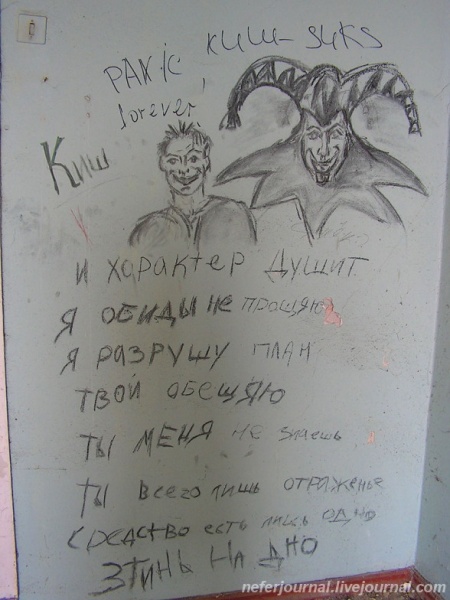 PAHK
КИШ-SUKS
forever
Киш
И характер душит
Я обиды не прощяю
Я разрушу план
твой обещяю
ты меня не знаешь
ты всего лишь отраженье
средство есть лишь одно
згинь на дно
neferjournal.livejournal.com